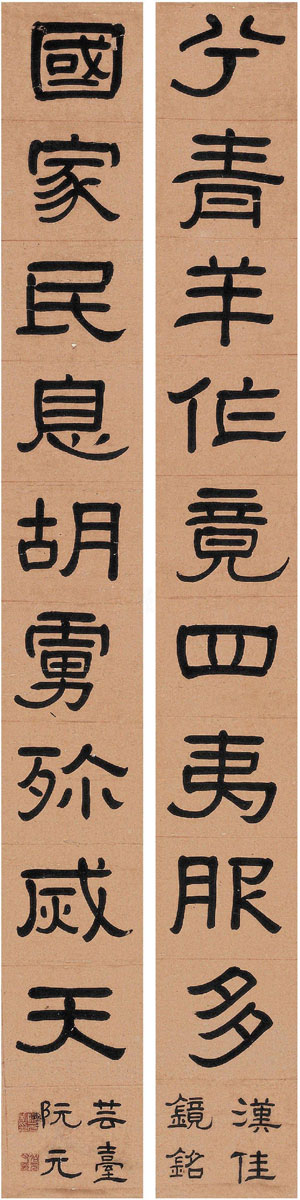 兮青羊作竟四夷服多
漢佳
鏡銘
國家民息胡虜殄烕天
芸臺
阮元